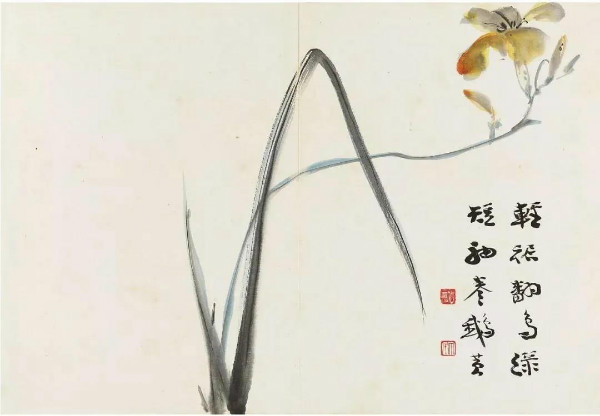 輕裾翻鳥綠
短袖卷鵝黃